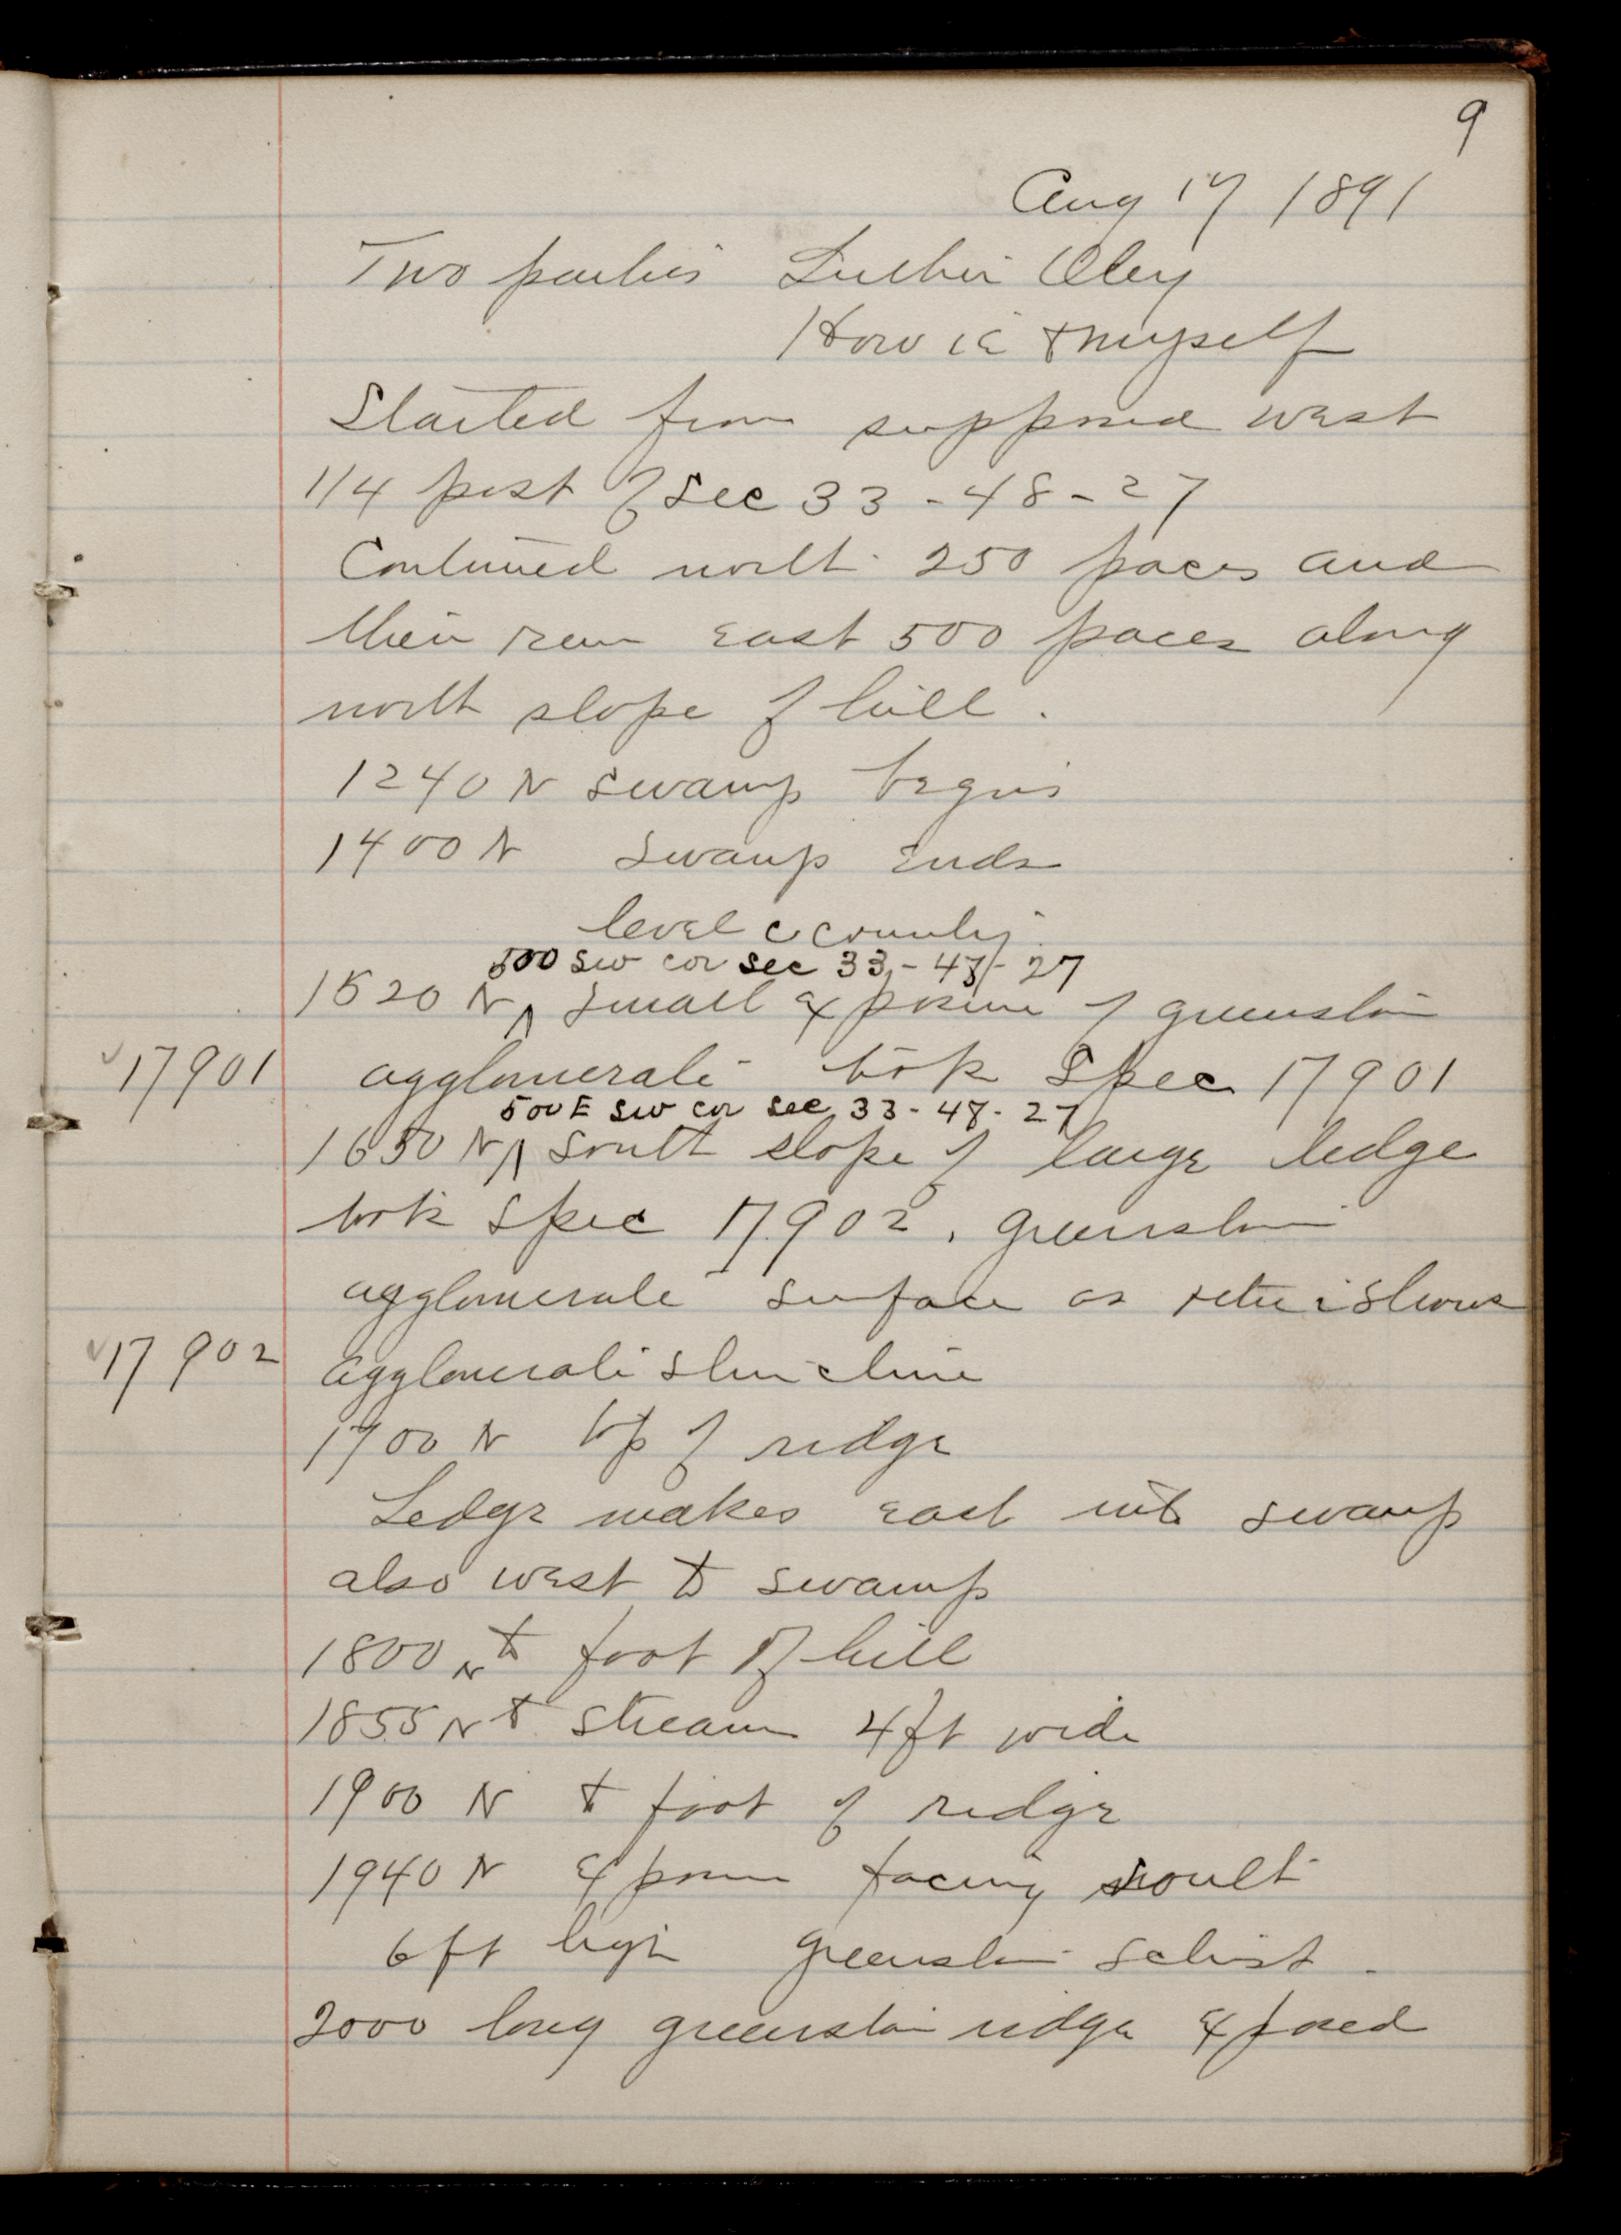 9
Aug 17 1891
Two parties Luther Oley
Howie & myself
Started from supposed west
1/4 post of Sec 33 - 48 - 27
Continued north 250 paces and
then run east 500 paces along
north slope of hill.
1240 N swamp begins
1400 N swamp ends
level country
500 SW cor Sec 33 - 48 - 27
1520 N ^ small exposure of greenstone
17901 agglomerate took Spec 17901
500 E SW cor Sec 33 - 48 - 27
1650 N ^ South slope of large ledge
took Spec 17902, greenstone
agglomerate surface as shows
17902 agglomerate structure
1700 N top of ridge
Ledge makes east into swamp
also west to swamp
1800 N to foot of hill
1855 N to stream 4 ft wide
1900 N to foot of ridge
1940 N exposure facing south
6 ft high greenstone schist.
2000 long greenstone ridge exposed